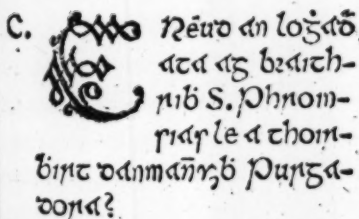 C. CRéud an loġaḋ
ata ag braith-
riḃ S. Phroin-
sias le a thoir-
ḃirt danmañyḃ Purga-
dora?